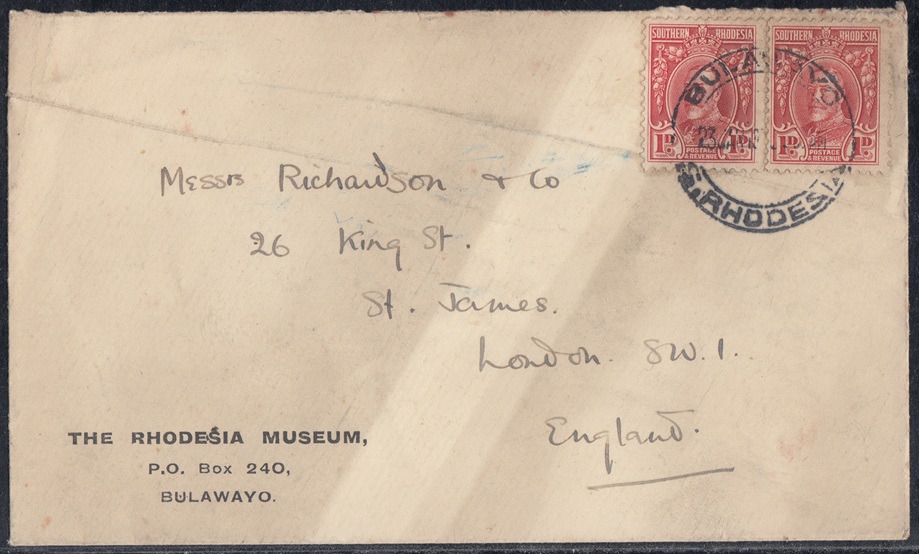 SOUTHERN RHODESIA
1D 1D
POSTAGE
& REVENUE
SOUTHERN RHODESIA
1D 1D
POSTAGE
& REVENUE
BULAWAYO
23
S. RHODESIA
Messrs Richardson & Co
26 King St.
St. James.
London. SW.1.
England.
THE RHODESIA MUSEUM,
P.O. Box 240,
BULAWAYO.